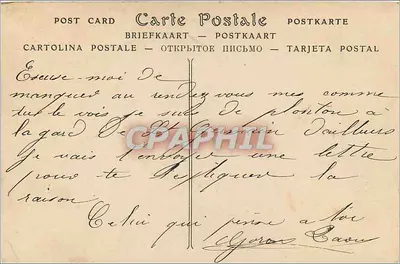 POST CARD Carte Postale POSTKARTE
BRIEFKAART — POSTKAART
CARTOLINA POSTALE — ОТКРЫТОЕ ПИСЬМО — TARJETA POSTAL
Excuse-moi de
manquer au rendez vous mes comme
tu le vois je suis de planton à
la gard de St Germain d'ailleurs
je vais t'envoyer une lettre
pour te expliquer la
raison
Celui qui pense a toi
CPAPHIL